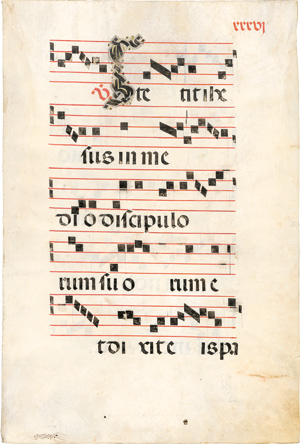 xxxvj
℣ Ste tit ihe
sus in me
di o discipulo
rum su o rum e
t di xit e is pa